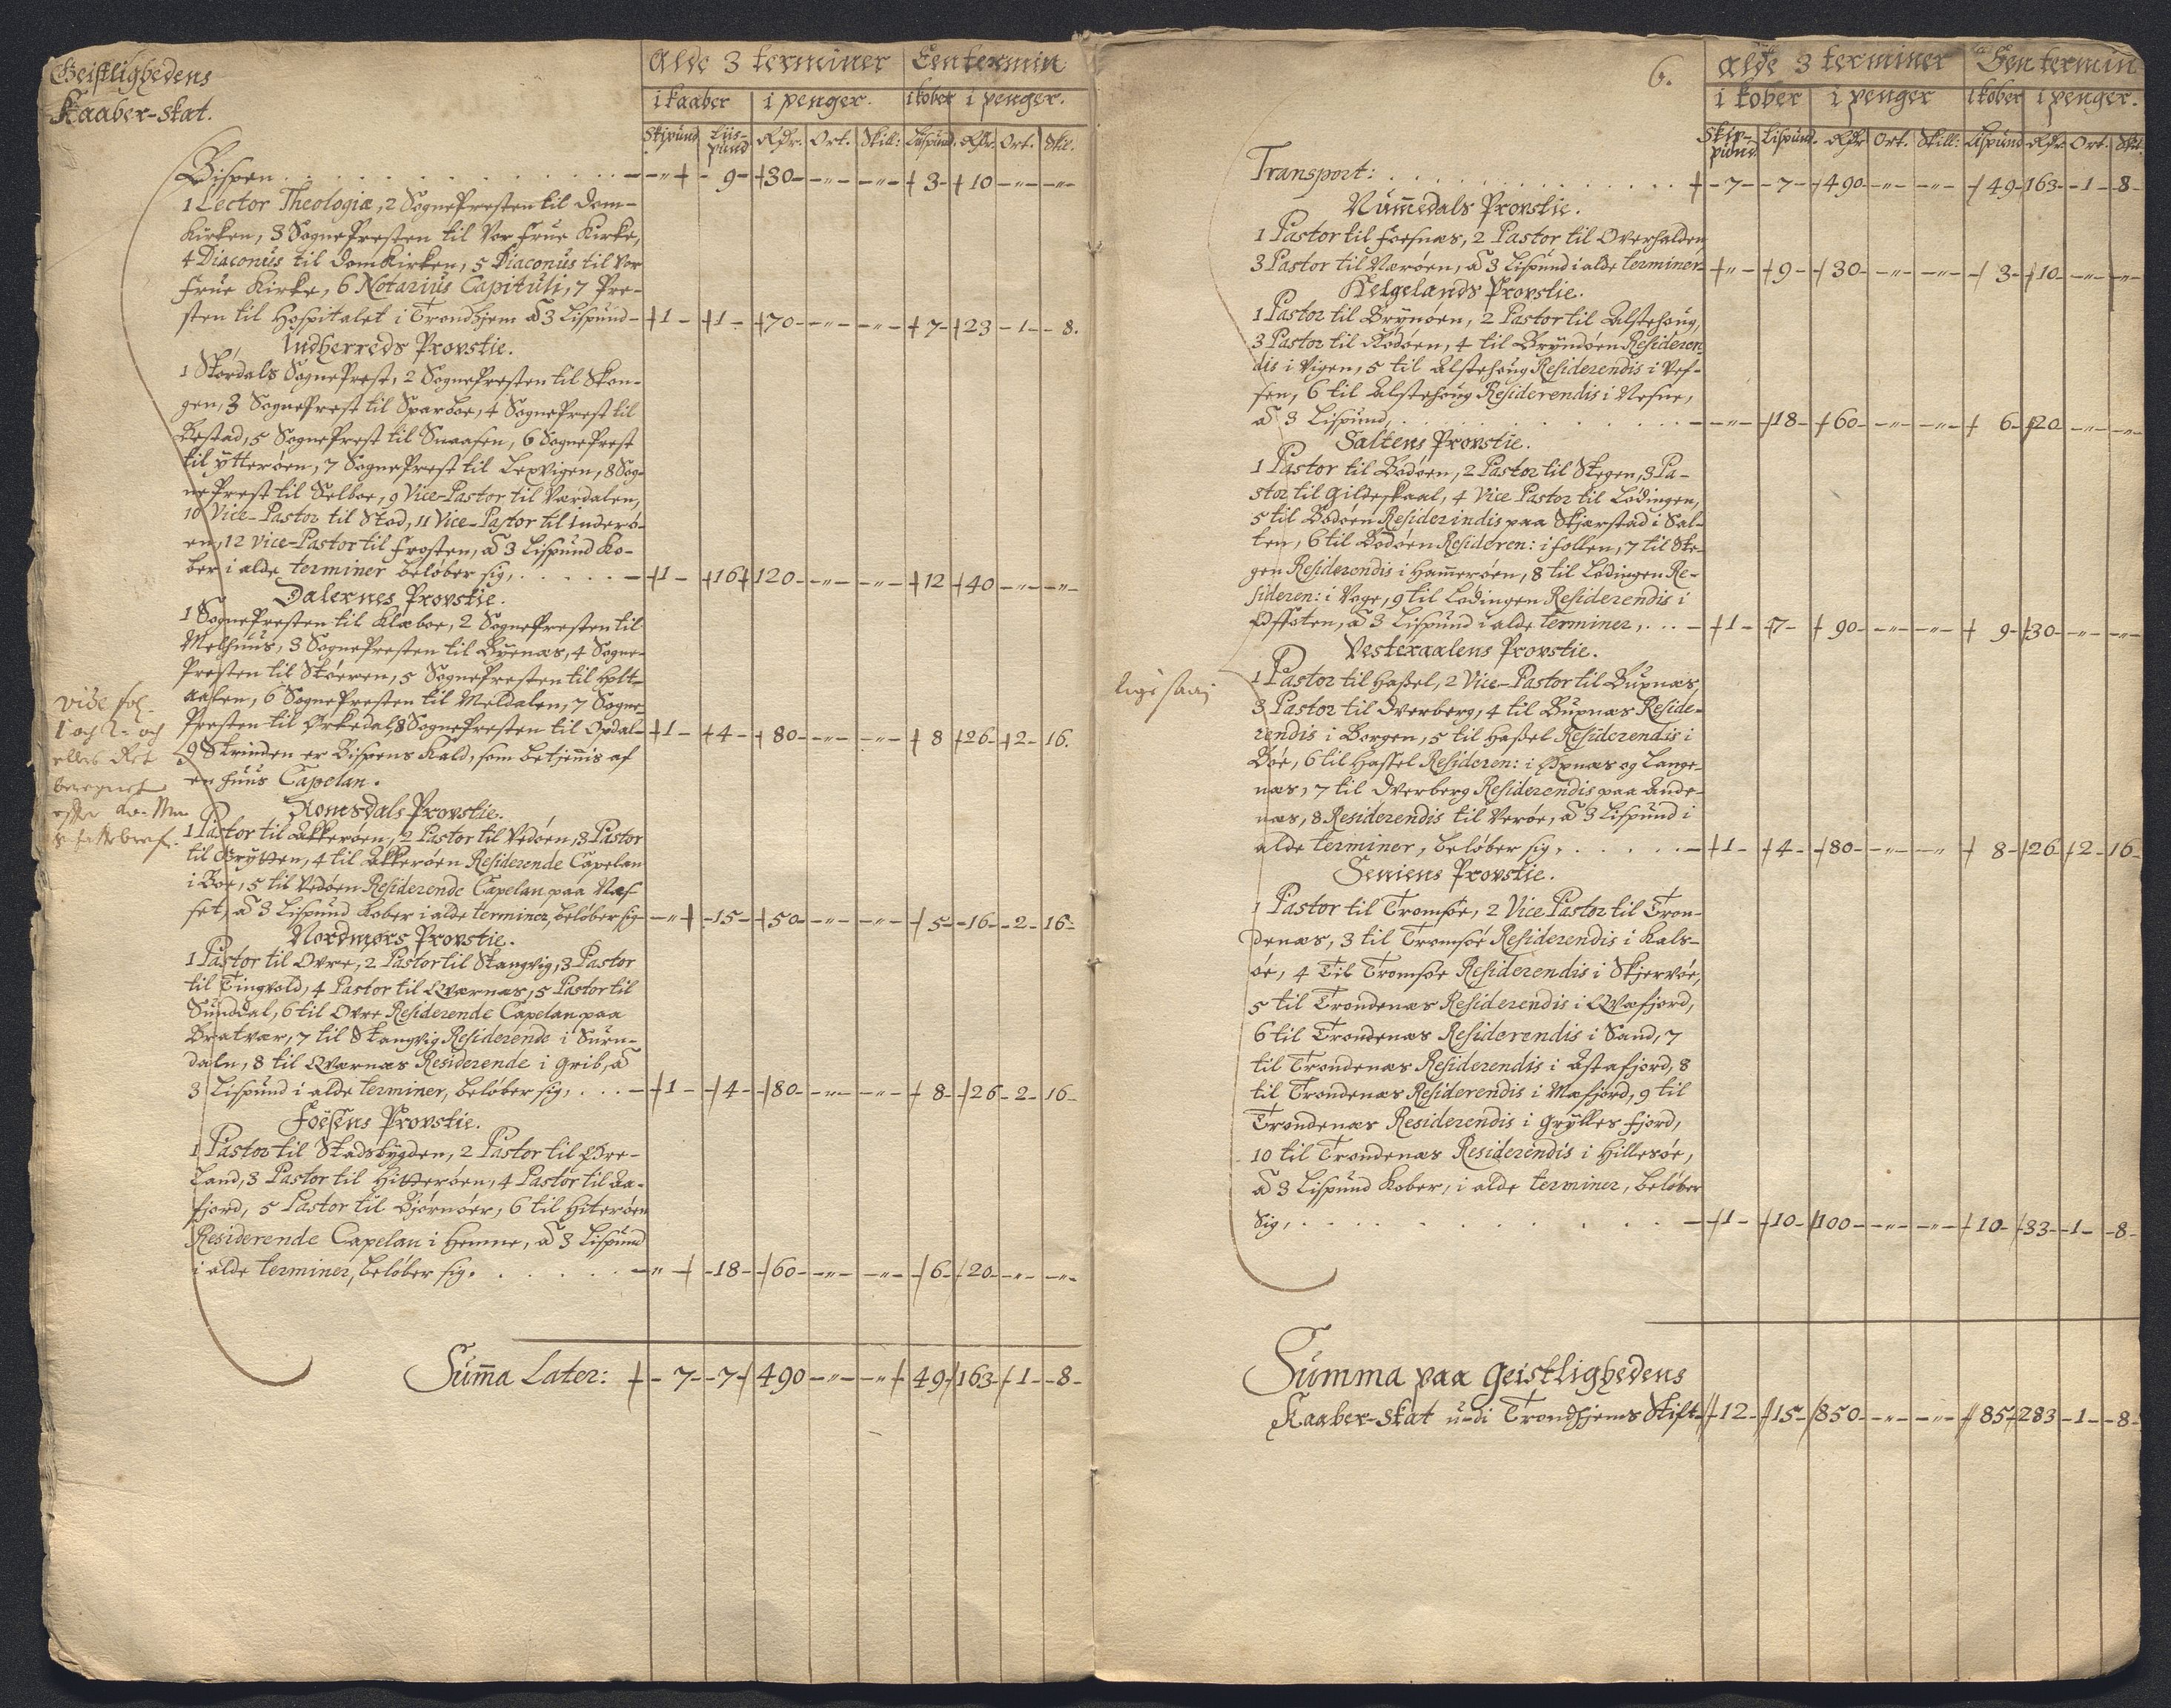 Geistlighedens
Kaaber-skat.
Alde 3 terminer Een termin
i kaaber i penger. i kober i penger.
Skipund Liispund Rdr. Ort. Skill: Lispund. Rdr. Ort. Skil.
Bispen . . . . . . . - " - 9 - 30 - " - " - 3 - 10 - " - "
1 Lector Theologiæ, 2 SognePresten til Dom-
Kirken, 3 SognePresten til Vor Frue Kirke,
4 Diaconus til DomKirken, 5 Diaconus til Vor
Frue Kirke, 6 Notarius Capituli, 7 Pre-
sten til Hospitalet i Trondhjem á 3 Lispund - 1 - 1 - 70 - " - " - 7 - 23 - 1 - 8.
Indherreds Provstie.
1 Størdals SognePrest, 2 SognePresten til Skon-
gen, 3 SognePrest til Sparboe, 4 SognePrest til
Bestad, 5 SognePrest til Snaasen, 6 SognePrest
til ytterøen, 7 SognePrest til Lexvigen, 8 Sog-
nePrest til Selboe, 9 Vice-Pastor til Værdalen,
10 Vice-Pastor til Stod, 11 Vice-Pastor til inderø-
en, 12 Vice-Pastor til Frosten, á 3 Lispund Ko-
ber i alde terminer beløber sig, . . . . - 1 - 16 - 120 - " - " - 12 - 40 - " - "
Dalernes Provstie.
1 SognePresten til Klæboe, 2 SognePresten til
Melhuus, 3 SognePresten til Bynæs, 4 Sogne-
Presten til Støeren, 5 SognePresten til Holt-
aalen, 6 SognePresten til Meldalen, 7 Sogne-
Presten til Ørkedal, 8 SognePresten til Opdal - 1 - 4 - 80 - " - " - 8 - 26 - 2 - 16.
9 Strinden er Bispens Kald, som betjenis af
en Huus Capelan.
vide fol.
1 och 2 och
ellers Ret
beregnet
Romsdals Provstie.
1 Pastor til Akkerøen, 2 Pastor til Vedøen, 3 Pastor
til Grytten, 4 til Akkerøen Residerende Capelan
i Boe, 5 til Vedøen Residerende Capelan paa Næs-
set, á 3 Lispund Kober i alde terminer, beløber sig - " - 15 - 50 - " - " - 5 - 16 - 2 - 16 -
Nordmørs Provstie.
1 Pastor til Ovre, 2 Pastor til Stangvig, 3 Pastor
til Tingvold, 4 Pastor til Qværnæs, 5 Pastor til
Sunddal, 6 til Ovre Residerende Capelan paa
Bratvær, 7 til Stangvig Residerende i Surn-
daln, 8 til Qværnæs Residerende i Grib, á
3 Lispund i alde terminer, beløber sig, . . . - 1 - 4 - 80 - " - " - 8 - 26 - 2 - 16 -
Foesens Provstie.
1 Pastor til Stadsbygden, 2 Pastor til Øre-
Land, 3 Pastor til Hitterøen, 4 Pastor til Aa-
fjord, 5 Pastor til Bjørnøer, 6 til Hiterøen
Residerende Capelan i Hemne, á 3 Lispund
i alde terminer, beløber sig. . . . . . - " - 18 - 60 - " - " - 6 - 20 - " - "
Summa Later: - 7 - 7 - 490 - " - " - 49 - 163 - 1 - 8 -
6.
alde 3 terminer Een termin
i kober i penger i kober i penger.
Skippund Lispund. Rdr Ort. Skill: Lispund Rdr. Ort. Skil.
Transport: . . . . . . . - 7 - 7 - 490 - " - " - 49 - 163 - 1 - 8 -
Nummedals Provstie.
1 Pastor til Foesnæs, 2 Pastor til Overhalden
3 Pastor til Nærøen, á 3 Lispund i alde terminer - " - 9 - 30 - " - " - 3 - 10 - " - "
Helgelands Provstie.
1 Pastor til Brynøen, 2 Pastor til Alstehoug,
3 Pastor til Rødøen, 4 til Bryndøen Resideren-
dis i Vigen, 5 til Alstehoug Residerendis i Vef-
sen, 6 til Alstehoug Residerendis i Nesne,
á 3 Lispund . . . . . . . - " - 18 - 60 - " - " - 6 - 20 - " - "
Saltens Provstie.
1 Pastor til Bodøen, 2 Pastor til Stegen, 3 Pa-
stor til Gildeskaal, 4 Vice Pastor til Lødingen,
5 til Bodøen Residerindis paa Skjærstad i Sal-
ten, 6 til Bodøen Resideren: i Follen, 7 til Ste-
gen Residerendis i Hammerøen, 8 til Lødingen Re-
sideren: i Voge, 9 til Lodingen Residerendis i
Offoten, á 3 Lispund i alde terminer, . . . - 1 - 7 - 90 - " - " - 9 - 30 - " - "
Vesteraalens Provstie.
1 Pastor til Hassel, 2 Vice-Pastor til Buxnæs,
3 Pastor til Overberg, 4 til Buxnæs Reside-
rendis i Borgen, 5 til Hassel Residerendis i
Bøe, 6 til Hassel Resideren: i Øxnæs og Lange-
næs, 7 til Overberg Residerendis paa Ande-
næs, 8 Residerendis til Verøe, á 3 Lispund i
alde terminer, beløber sig, . . . . . - 1 - 4 - 80 - " - " - 8 - 26 - 2 - 16 -
Seniens Provstie.
1 Pastor til Tromsøe, 2 Vice Pastor til Tron-
denæs, 3 til Tromsøe Residerendis i Kals-
øe, 4 Til Tromsøe Residerendis i Skjervøe,
5 til Trondenæs Residerendis i Qvæfjord,
6 til Trondenæs Residerendis i Sand, 7
til Trondenæs Residerendis i Astafjord, 8
til Trondenæs Residerendis i Mæfjord, 9 til
Trondenæs Residerendis i Grylles fjord,
10 til Trondenæs Residerendis i Hillesøe,
á 3 Lispund Kober, i alde terminer, beløber
Sig, . . . . . . . - 1 - 10 - 100 - " - " - 10 - 33 - 1 - 8 -
Summa paa Geistlighedens
Kaaber-skat udi Trondhjems Stift - 12 - 15 - 850 - " - " - 85 - 283 - 1 - 8 -